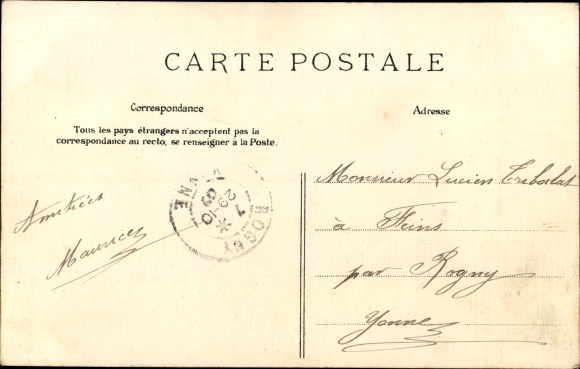 CARTE POSTALE
Correspondance
Tous les pays étrangers n'acceptent pas la
correspondance au recto, se renseigner à la Poste.
Adresse
Amitiés
Maurice
ROGNY
7
29-10
09
YONNE
Monsieur Lucien Tribolat
à Feins
par Rogny
Yonne